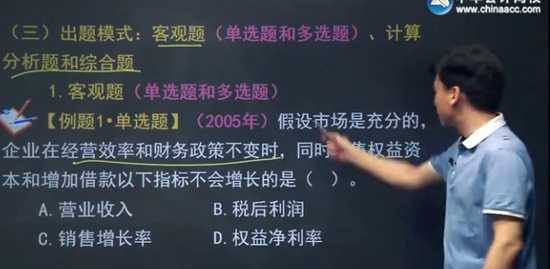 中华会计网校
www.chinaacc.com
(三)出题模式:客观题(单选题和多选题)、计算
分析题和综合题
1.客观题(单选题和多选题)
【例题1•单选题】(2005年)假设市场是充分的,
企业在经营效率和财务政策不变时,同时 售权益资
本和增加借款以下指标不会增长的是( )。
A.营业收入 B.税后利润
C.销售增长率 D.权益净利率